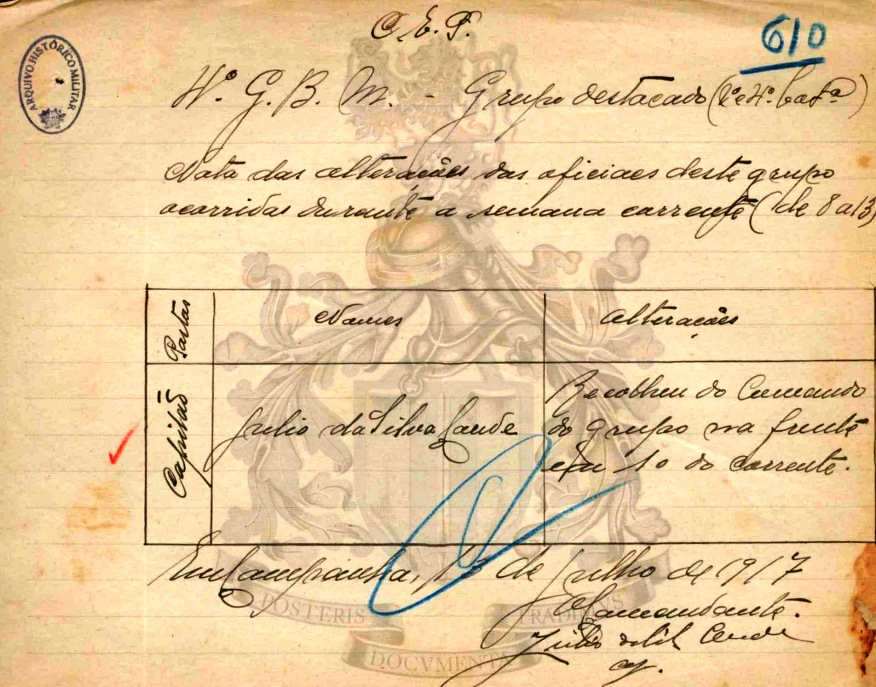 C. E. P.
610
ARQUIVO HISTÓRICO MILITAR
4º G. B. M. - Grupo destacado (2ª e 4ª batª)
Nota das alterações dos oficiaes deste grupo
ocorridas durante a semana corrente (de 8 a 13
Postos
Nomes
Alterações
Capitão
Julio da Silva
Recolheu do Comando
do grupo na frente
em 10 do corrente.
Em Campanha, 13 de Julho de 1917
O Comandante.
POSTERIS TRADIT
DOCVMENTA